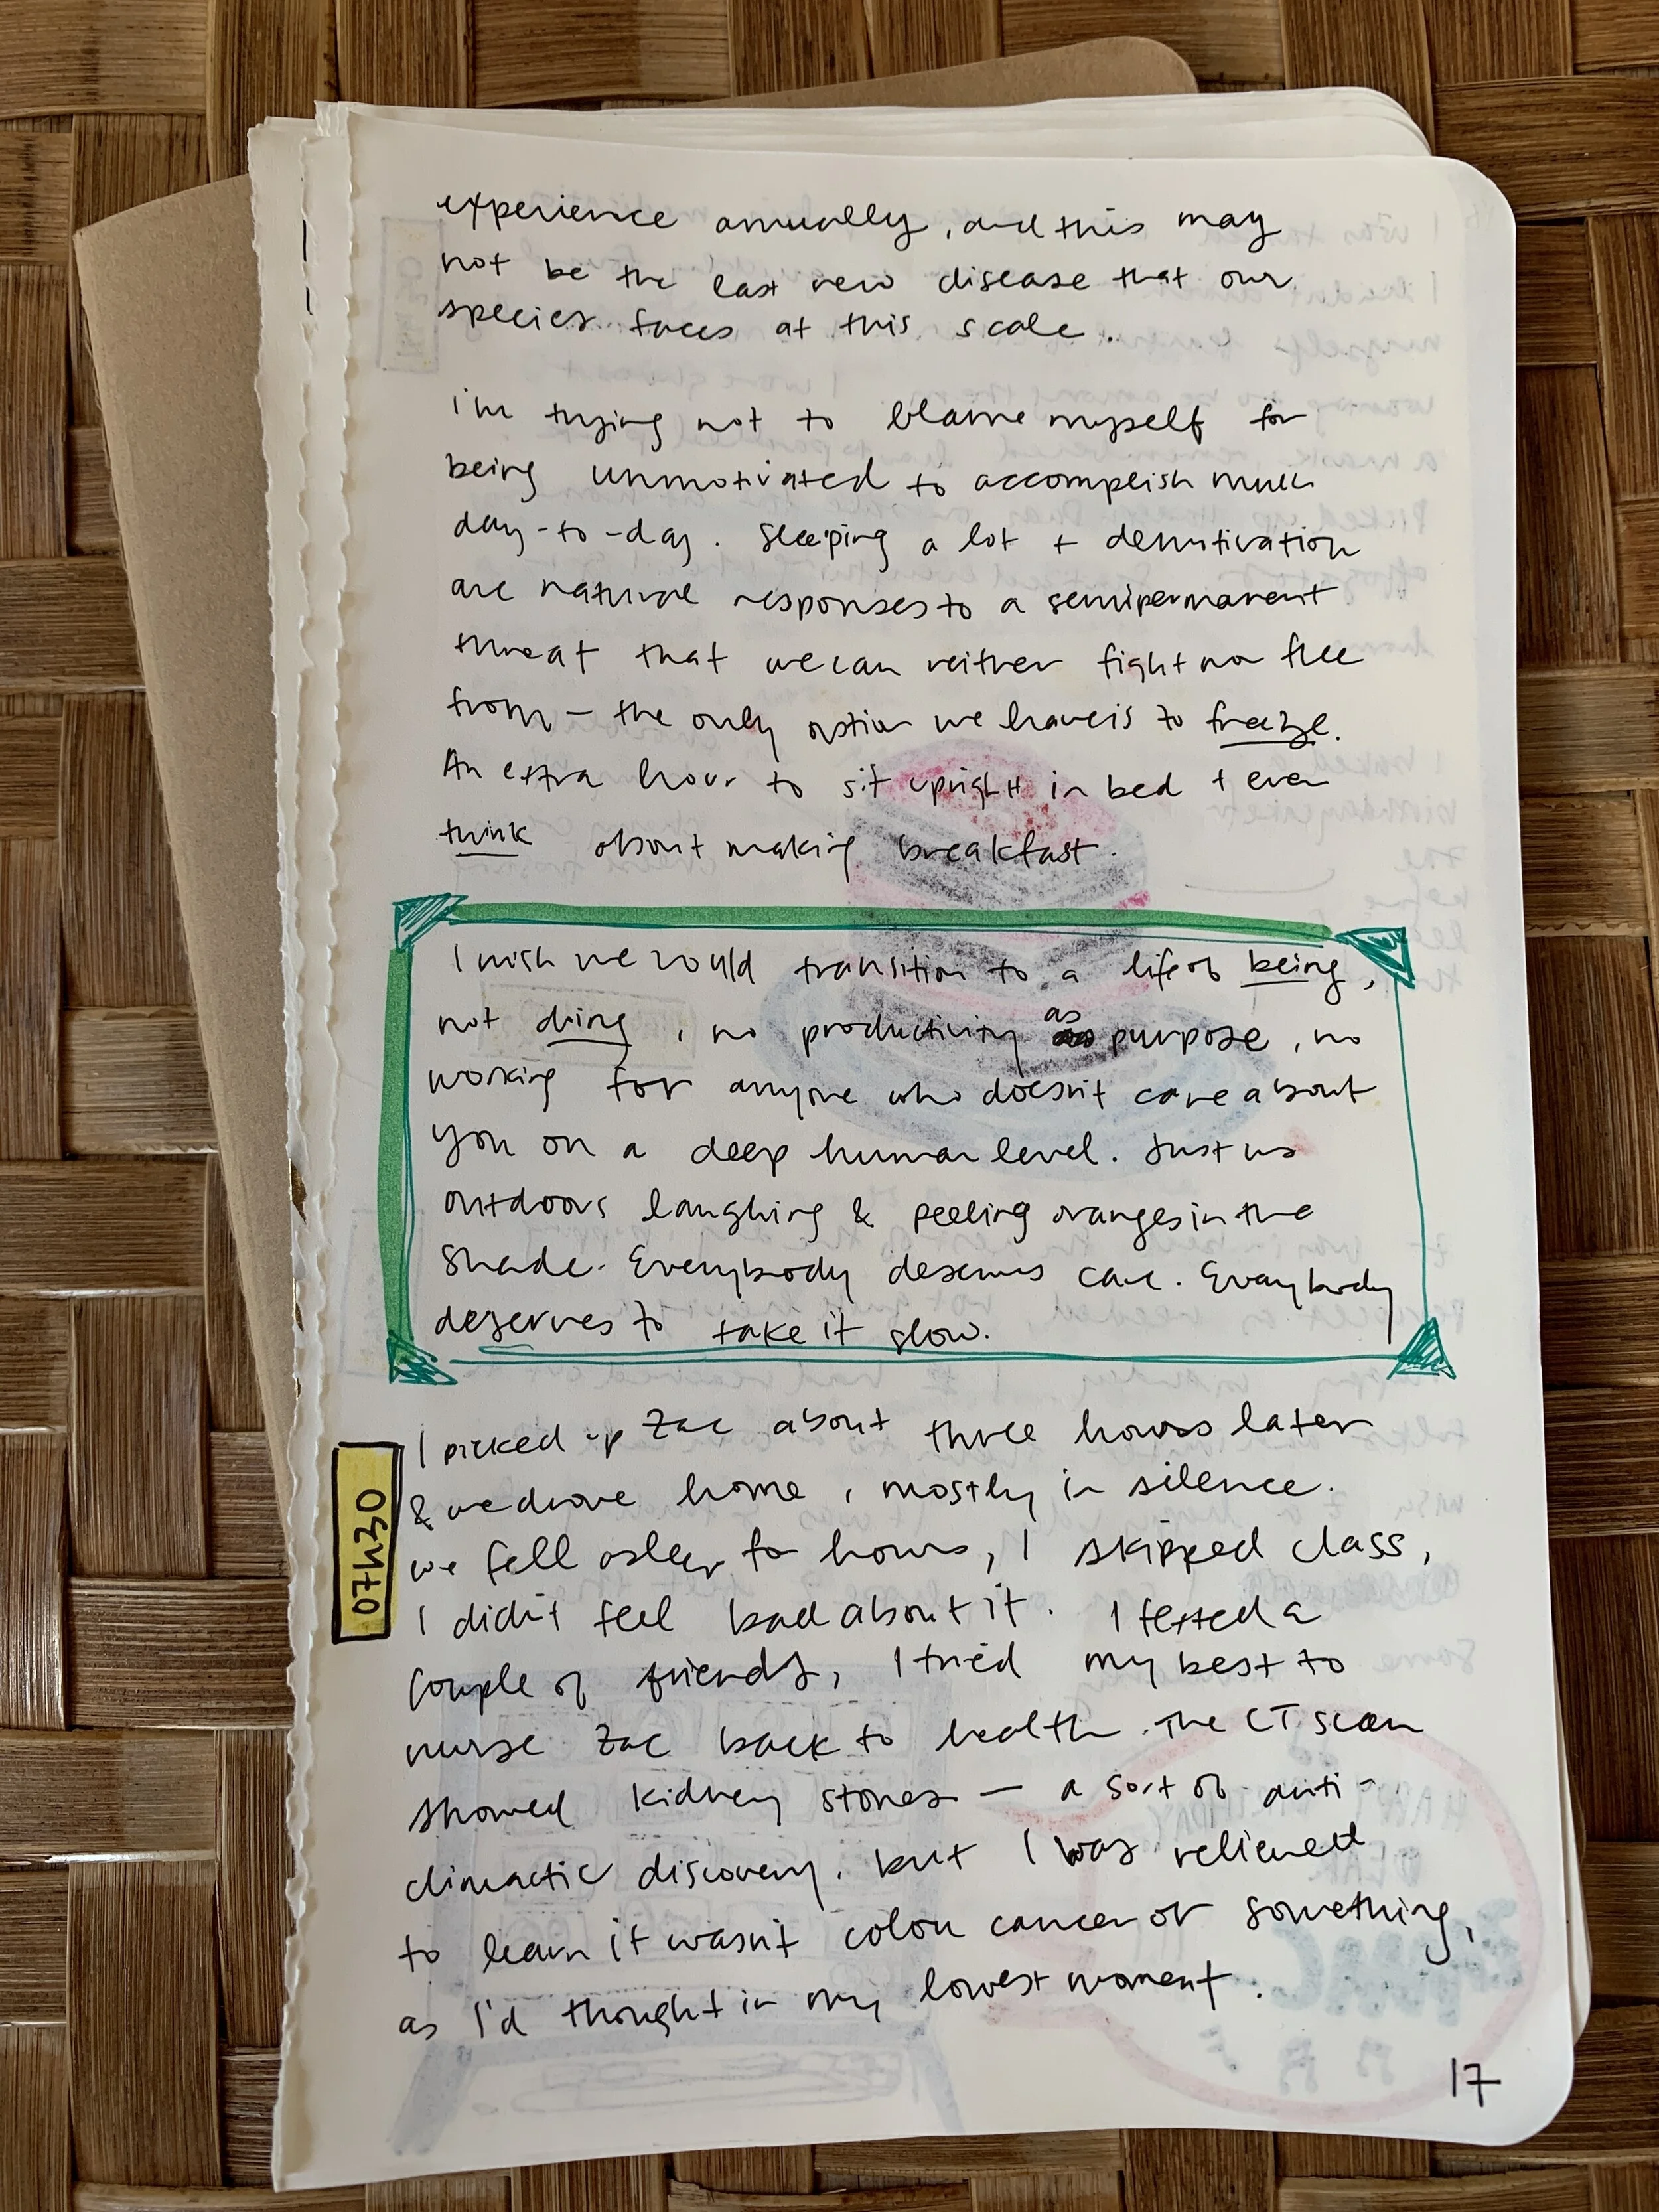 experience annually, and this may
not be the last new disease that our
species faces at this scale.
i'm trying not to blame myself for
being unmotivated to accomplish much
day-to-day. Sleeping a lot + demotivation
are natural responses to a semipermanent
threat that we can neither fight nor flee
from — the only option we have is to freeze.
An extra hour to sit upright in bed + even
think about making breakfast.
I wish we could transition to a life of being,
not doing, no productivity as purpose, no
working for anyone who doesn't care about
you on a deep human level. Just us
outdoors laughing & peeling oranges in the
shade. Everybody deserves care. Everybody
deserves to take it slow.
07H30
I picked up Zac about three hours later
& we drove home, mostly in silence.
we fell asleep for hours, I skipped class,
I didn't feel bad about it. I texted a
couple of friends, I tried my best to
nurse Zac back to health. The CT scan
showed kidney stones — a sort of anti-
climactic discovery. but I was relieved
to learn it wasn't colon cancer or something,
as I'd thought in my lowest moment.
17